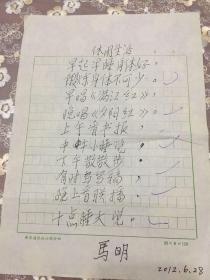 休闲生活
早起早睡身体好,
微乐身体不可少。
早唱《满江红》
晚唱《夕阳红》
上午看书报,
中时小睡觉
下午散散步
有时写写稿
晚上看联播
十点睡大觉。
马明
2012.6.28